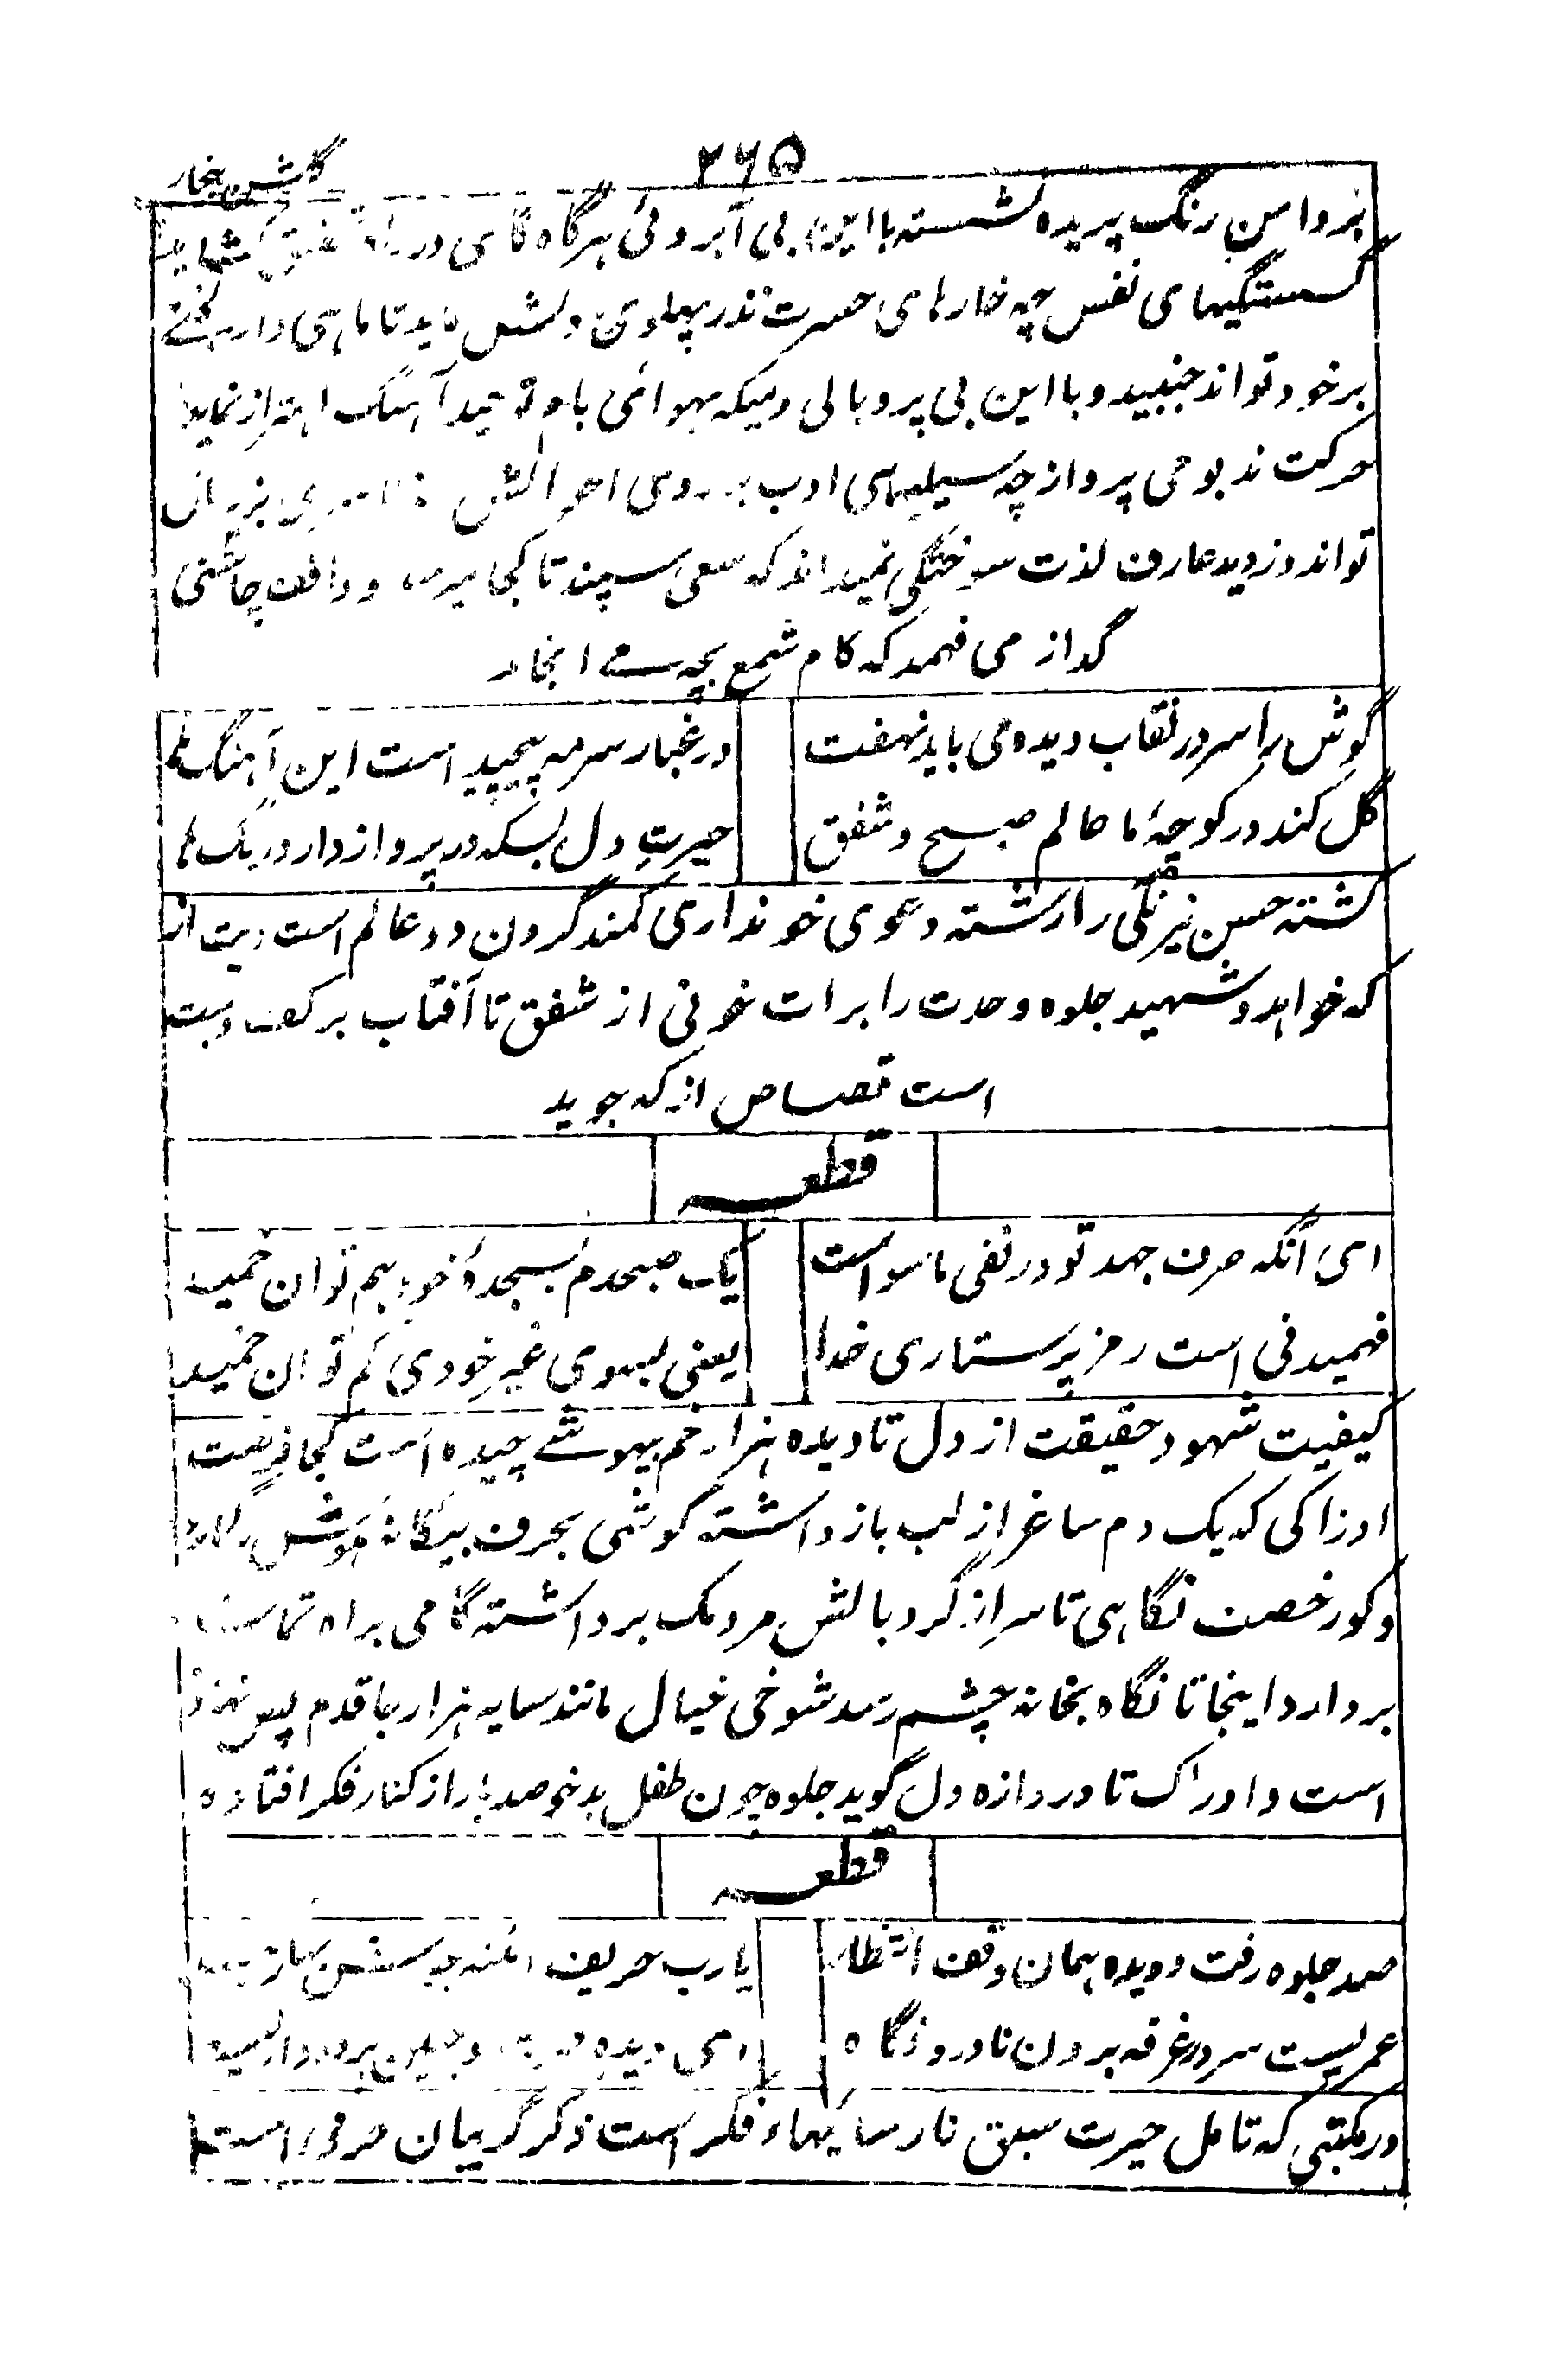 گلشن بیخار
۲۶۵
بر دامن رنگ پریده نشسته با این بی آبروئی هرگاه گامی در راه
گسستگیهای نفس چه خارهای حسرت نذر پهلوی دلش ناید تا ماهی وار
بر خود تواند جنبید و با این بی پر و بالی دمیکه بهوائی بام آهنگ اهتزاز نماید
حرکت نه بوحی پرواز چه سیلیهای ادب بر روی احوالش
تواند دزدید عارف لذت سوختگی نمیداند که سعی سپند تا کجا میرسد و واقف چاشنی
گداز می فهمد که کام شمع بچه می انجامد
گوش را سر در نقاب دیده می باید نهفت
در غبار سرمه پیچید است این آهنگ ها
گل کند در کوچۂ ما عالم صبح و شفق
حیرت دل بسکه در پرواز دارد رنگ ها
کشته حسن نیرنگی را رشته دعوی خونداری کمند گردن دو عالم است دیت از
که خواهد و شهید جلوه وحدت را برات خونی از شفق تا آفتاب بر کف دست
است قصاص از که جوید
قطعه
ای آنکه صرف جهد تو در نفی ماسواست
یک صبحدم بسجدۂ خود هم توان خمید
فهمیدنی است رمز پرستاری خدا
یعنی بسوی غیر خودی کم توان خمید
کیفیت شهود حقیقت از دل تا دیده هزار خم بیهوشی چیده است کجا فرصت
ادراکی که یک دم ساغر از لب باز داشته گوشی بحرف بیگانه هوش
و کو رخصت نگاهی تا سر از گرد بالش مردمک برداشته گامی براه تماشا
بردارد اینجا تا نگاه بخانه چشم رسد شوخی خیال مانند سایه هزار جا قدم پس
است و ادراک تا دروازه دل گوید جلوه چون طفل بدخو صد بار از کنار فکر افتاده
قطعه
صد جلوه رفت و دیده همان وقف انتظار
یارب حریف
عمریست سر ز غرفه برون نادرد نگاه
ای دیده
در مکتبی که تامل حیرت سبق نارسائیهاء فکر است ذکر گریبان حرفی است